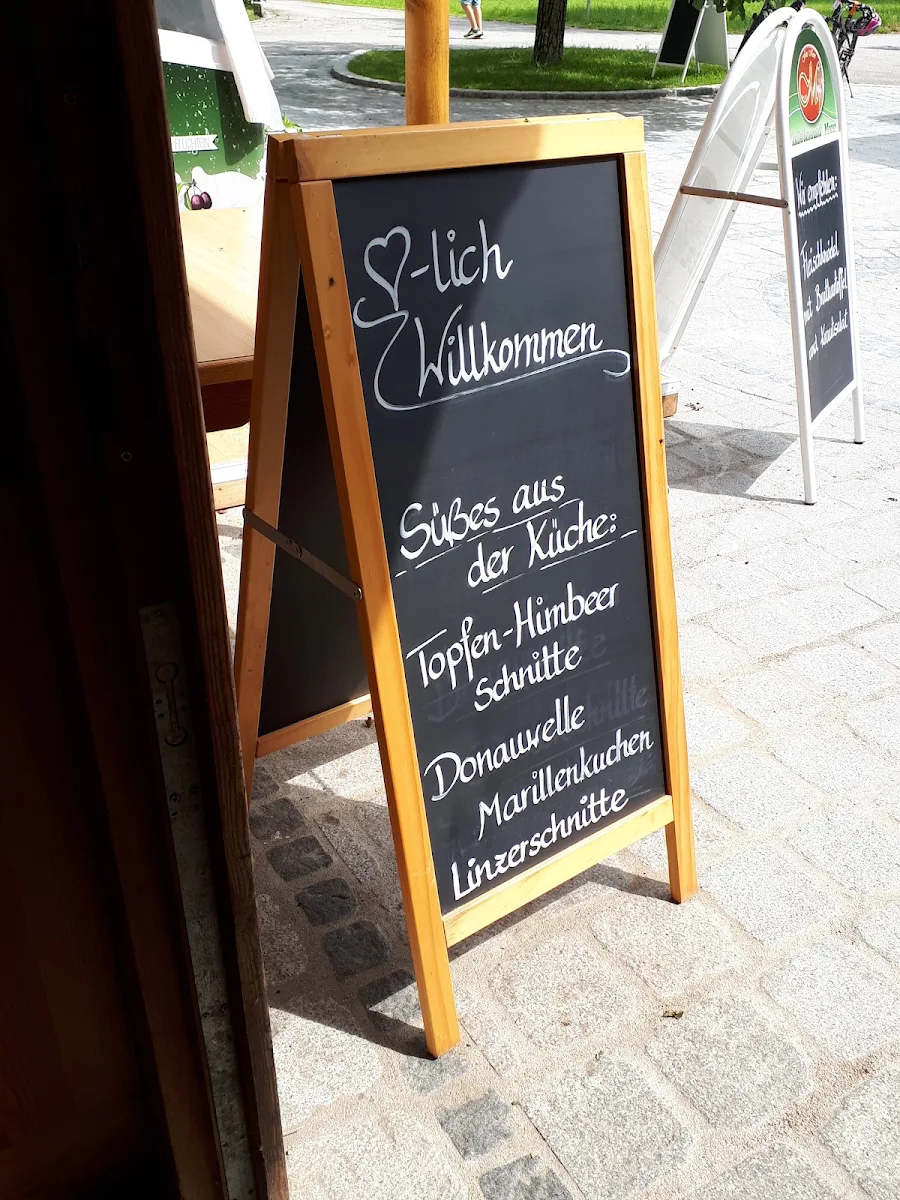 ♡-lich
Willkommen
Süßes aus
der Küche:
Topfen-Himbeer
Schnitte
Donauwelle
Marillenkuchen
Linzerschnitte
Wir empfehlen:
Fleischknödel
mit
und Krautsalat